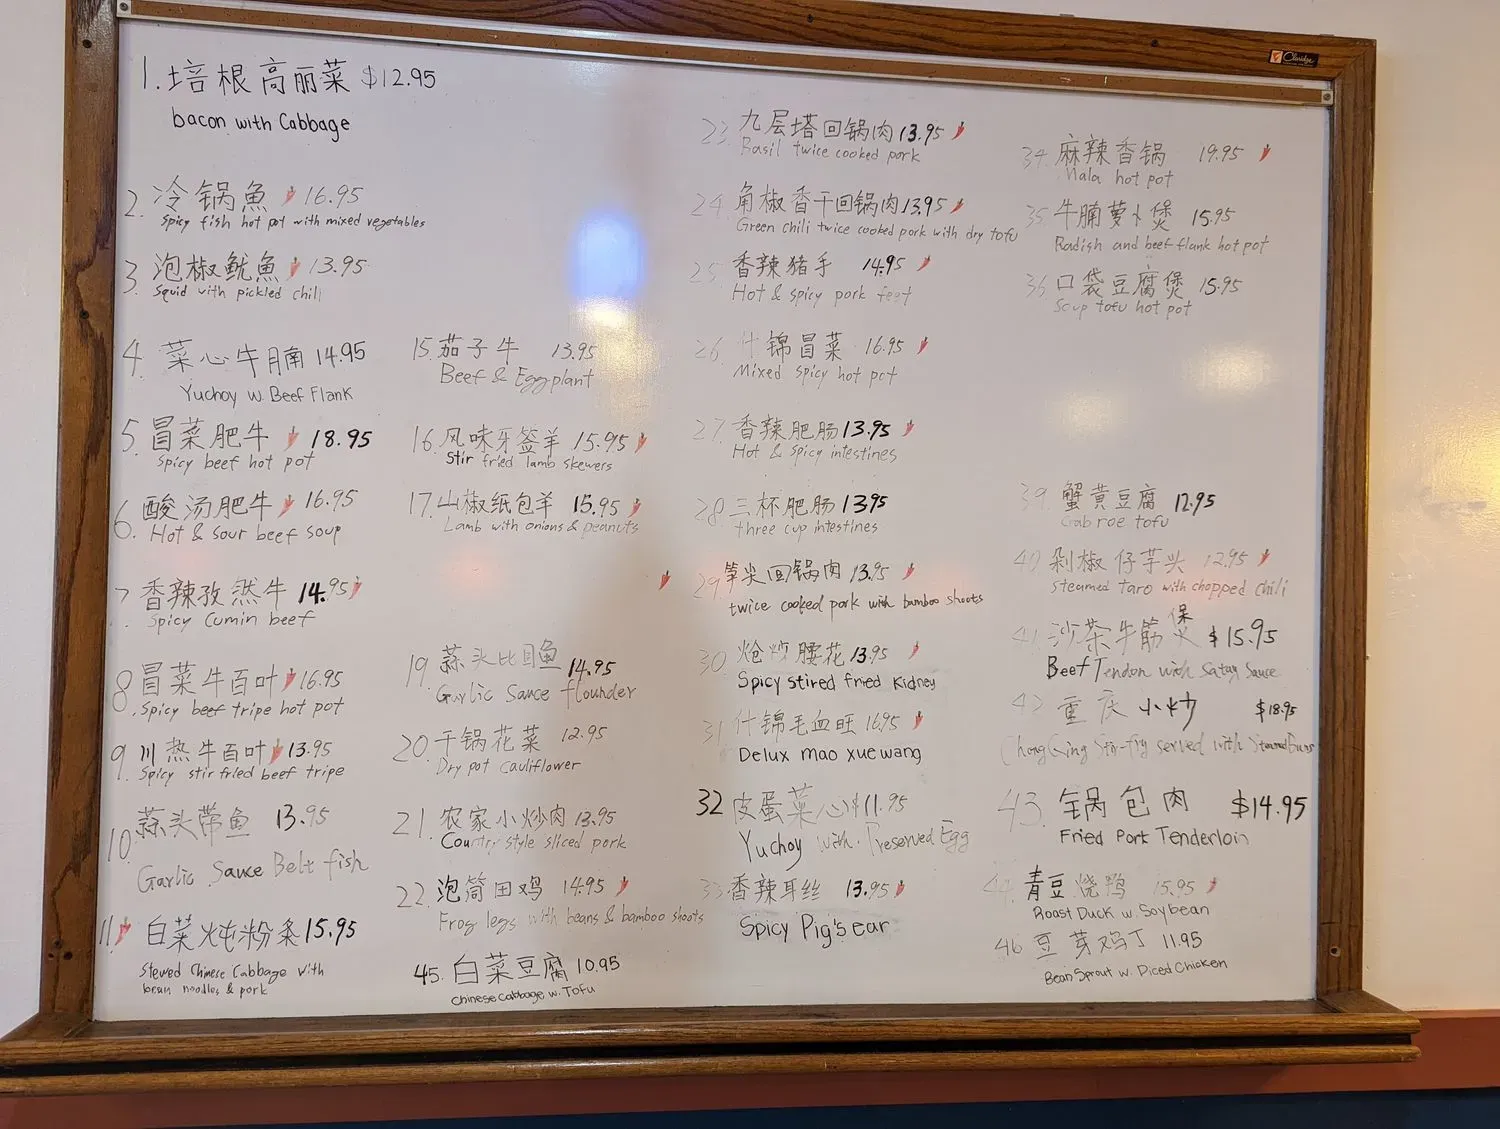 Claridge
1. 培根高丽菜 $12.95
bacon with Cabbage
2. 冷锅魚 16.95
Spicy fish hot pot with mixed vegetables
3. 泡椒鱿魚 13.95
Squid with pickled chili
4. 菜心牛腩 14.95
Yuchoy w. Beef Flank
5. 冒菜肥牛 18.95
Spicy beef hot pot
6. 酸汤肥牛 16.95
Hot & Sour beef soup
7 香辣孜然牛 14.95
Spicy Cumin beef
8. 冒菜牛百叶 16.95
Spicy beef tripe hot pot
9. 川热牛百叶 13.95
Spicy stir fried beef tripe
10. 蒜头带鱼 13.95
Garlic Sauce Belt fish
11 白菜炖粉条 15.95
Stewed Chinese Cabbage with
bean noodles & pork
15. 茄子牛 13.95
Beef & Eggplant
16. 风味牙签羊 15.95
Stir fried lamb skewers
17. 山椒纸包羊 15.95
Lamb with onions & peanuts
19. 蒜头比目鱼 14.95
Garlic Sauce flounder
20. 干锅花菜 12.95
Dry pot Cauliflower
21. 农家小炒肉 13.95
Country style sliced pork
22. 泡筒田鸡 14.95
Frog legs with beans & bamboo shoots
45. 白菜豆腐 10.95
Chinese Cabbage w. Tofu
23. 九层塔回锅肉 13.95
Basil twice cooked pork
24. 角椒香干回锅肉 13.95
Green chili twice cooked pork with dry tofu
25. 香辣猪手 14.95
Hot & Spicy pork feet
26. 什锦冒菜 16.95
Mixed Spicy hot pot
27. 香辣肥肠 13.95
Hot & Spicy intestines
28. 三杯肥肠 13.95
three cup intestines
29 笋尖回锅肉 13.95
twice cooked pork with bamboo shoots
30. 炝炒腰花 13.95
Spicy stired fried Kidney
31. 什锦毛血旺 16.95
Delux mao xue wang
32 皮蛋菜心 $11.95
Yuchoy with Preserved Egg
33. 香辣耳丝 13.95
Spicy Pig's ear
34. 麻辣香锅 19.95
Mala hot pot
35. 牛腩萝卜煲 15.95
Radish and beef flank hot pot
36 口袋豆腐煲 15.95
Soup tofu hot pot
39. 蟹黄豆腐 12.95
Crab roe tofu
40. 剁椒仔芋头 12.95
Steamed Taro with chopped Chili
41. 沙茶牛筋煲 $15.95
Beef Tendon with Satay Sauce
42 重庆小炒 $18.95
ChongQing Stir-fry served with Steamed Buns
43. 锅包肉 $14.95
Fried Pork Tenderloin
44. 青豆烧鸭 15.95
Roast Duck w. Soybean
46. 豆芽鸡丁 11.95
Bean Sprout w. Diced Chicken